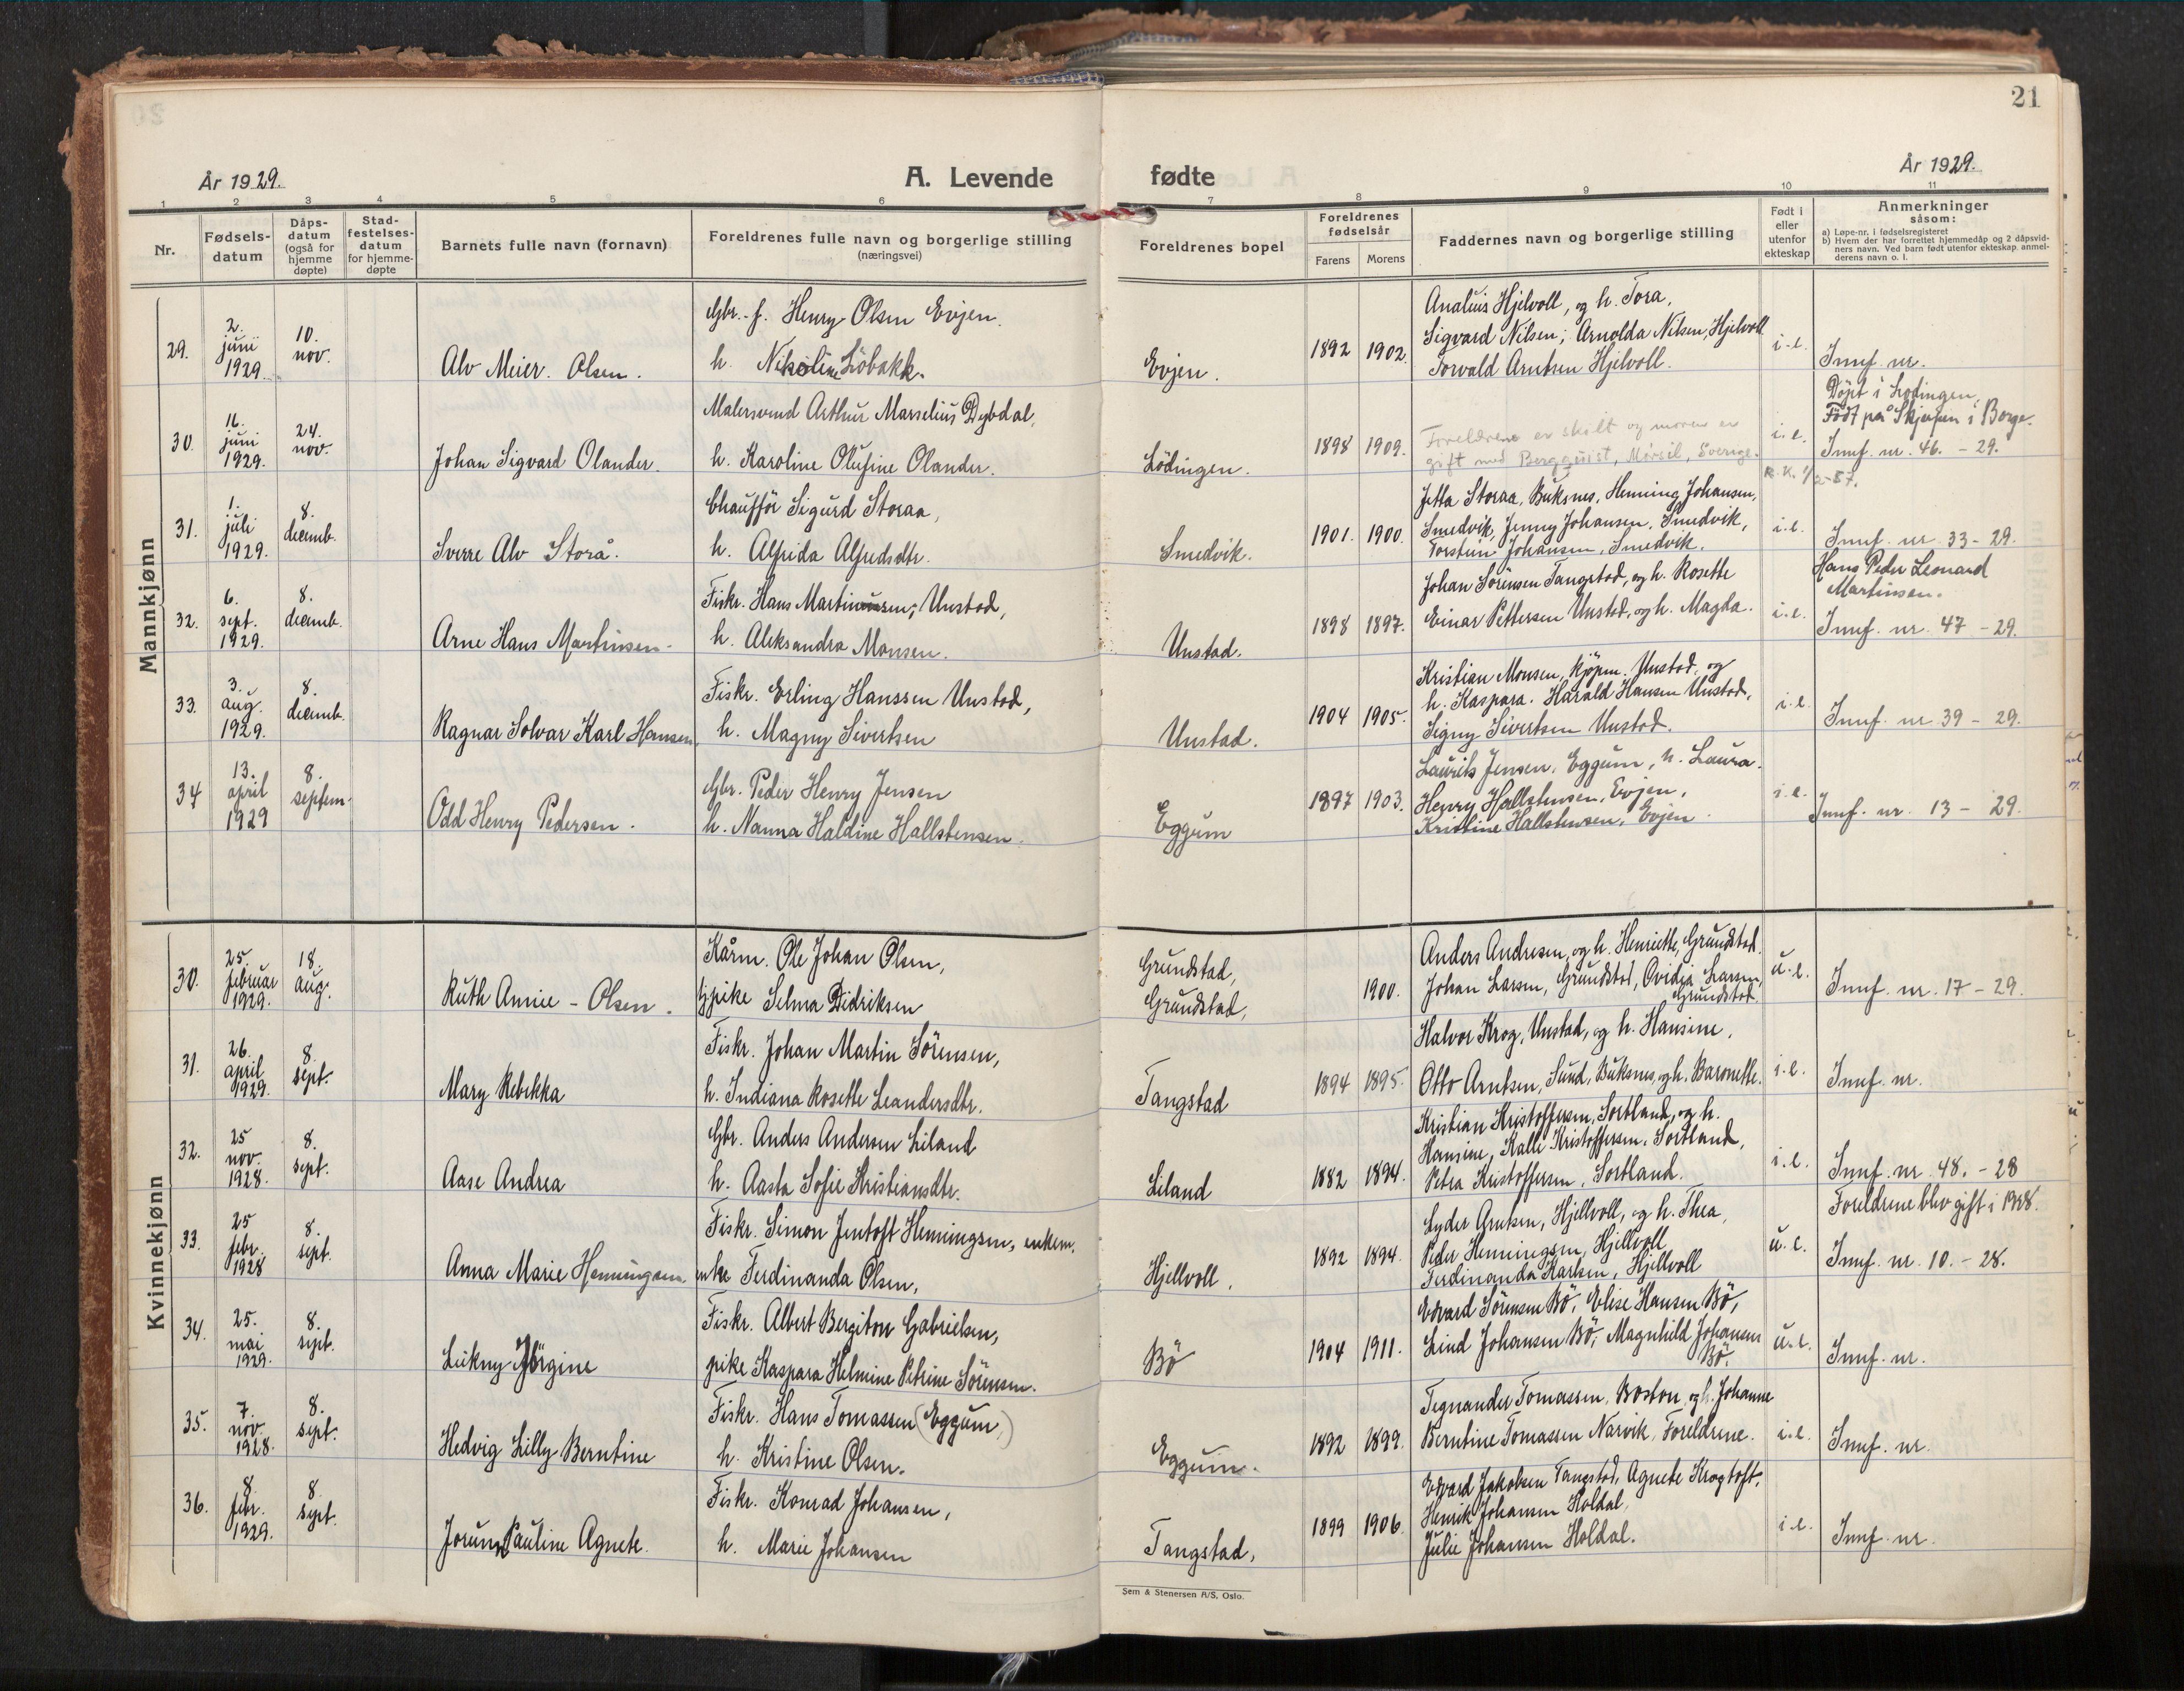 21
År 1929.
A. Levende
fødte
År 1929.
1 2 3 4 5 6 7 8 9 10 11
Nr.
Fødsels-
datum
Dåps-
datum
(også for
hjemme
døpte)
Stad-
festelses-
datum
for hjemme-
døpte
Barnets fulle navn (fornavn)
Foreldrenes fulle navn og borgerlige stilling
(næringsvei)
Foreldrenes bopel
Foreldrenes
fødselsår
Farens Morens
Faddernes navn og borgerlige stilling
Født i
eller
utenfor
ekteskap
Anmerkninger
såsom:
a) Løpe-nr. i fødselsregisteret
b) Hvem der har forrettet hjemmedåp og 2 dåpsvid-
ners navn. Ved barn født utenfor ekteskap anmel-
derens navn o. l.
Mannkjønn
29.
2.
juni
1929.
10.
nov.
Alv Meier. Olsen.
Gbr. f. Henry Olsen Evjen.
h. Nikoline Löbakk.
Evjen.
1892 1902.
Analius Hjelvoll, og h. Tora,
Sigvard Nilsen; Arnolda Nilsen, Hjelvoll
Torvald Arntsen Hjelvoll.
i.e.
Innf. nr.
30.
16.
juni
1929.
24.
nov.
Johan Sigvard Olander.
Malersvend Arthur Marselius Dybdal,
h. Karoline Olufine Olander.
Lödingen.
1898 1909.
Foreldrene er skilt og moren er
gift med Bergquist, Mörsil, Sverige.
i.e.
R.K. 1/2-57.
Döpt i Lödingen.
Född på Skjepen i Borge.
Innf. nr. 46. - 29.
31.
1.
juli
1929.
8.
decemb.
Sverre Alv Storå.
Chaufför Sigurd Storaa,
h. Alfrida Alfredsdtr.
Smedvik.
1901. 1900.
Jetta Storaa, Buksnes, Henning Johansen,
Smedvik, Jenny Johansen, Smedvik,
Torstein Johansen, Smedvik.
i.e.
Innf. nr. 33 - 29.
32.
6.
sept.
1929.
8.
decemb.
Arne Hans Martinsen.
Fiskr. Hans Martinusen, Unstad,
h. Aleksandra Monsen.
Unstad.
1898 1897.
Johan Sörensen Tangstad, og h. Rosette
Einar Pettersen Unstad, og h. Magda.
i.e.
Hans Peder Leonard
Martinsen.
Innf. nr. 47 - 29.
33.
3.
aug.
1929.
8.
decemb.
Ragnar Solvar Karl Hansen.
Fiskr. Erling Hanssen Unstad,
h. Magny Sivertsen
Unstad.
1904 1905.
Kristian Monsen, kjöpm. Unstad, og
h. Kaspara. Harald Hansen Unstad,
Signy Sivertsen Unstad.
i.e.
Innf. nr. 39 - 29.
34
13.
april
1929
8.
septem.
Odd Henry Pedersen.
Gbr. Peder Henry Jensen
h. Nanna Haldine Hallstensen.
Eggum
1897 1903.
Laurits Jensen, Eggum, h. Laura.
Henry Hallstensen, Evjen,
Kristine Hallstensen, Evjen.
i.e.
Innf. nr. 13 - 29.
Kvinnekjønn
30.
25.
februar
1929.
18.
aug.
Ruth Annie - Olsen.
Kårm. Ole Johan Olsen,
pike Selma Didriksen
Grundstad,
Grundstad,
1900.
Anders Andresen, og h. Henriette, Grundstad.
Johan Larsen, Grundstad, Ovidia Larsen,
Grundstad.
u.e.
Innf. nr. 17 - 29.
31.
26.
april
1929.
8.
sept.
Mary Rebekka
Fiskr. Johan Martin Sörensen,
h. Indiana Rosette Leandersdtr.
Tangstad
1894 1895.
Halvor Krog, Unstad, og h. Hansine,
Otto Arntsen, Sund, Buksnes, og h. Baronette.
i.e.
Innf. nr.
32.
25
nov.
1928.
8.
sept.
Aase Andrea
Gbr. Anders Andersen Liland
h. Aasta Sofie Kristiansdtr.
Liland
1882 1894.
Kristian Kristoffersen, Sortland, og h.
Hansine, Kalle Kristoffersen, Sortland,
Petra Kristoffersen, Sortland.
i.e.
Innf. nr. 48. - 28
33.
25
febr.
1928
8.
sept.
Anna Marie Henningsen
Fiskr. Simon Jentoft Henningsen, enkem.
enke Ferdinanda Olsen,
Hjellvoll.
1892 1894.
Lyder Arntsen, Hjellvoll, og h. Thea,
Peder Henningsen, Hjellvoll
Ferdinanda Karlsen, Hjellvoll
u.e.
Foreldrene blev gift i 1928.
Innf. nr. 10. - 28.
34.
25.
mai
1929.
8.
sept.
Lukny Jörgine
Fiskr. Albert Bergiton Gabrielsen,
pike Kaspara Helmine Petrine Sörensen.
Bö
1904 1911.
Edvard Sörensen Bö, Elise Hansen Bö,
Lind Johansen Bö, Magnhild Johansen
Bö.
u.e.
Innf. nr.
35.
7.
nov.
1928.
8.
sept.
Hedvig Lilly Berntine
Fiskr. Hans Tomassen (Eggum,)
h. Kristine Olsen.
Eggum.
1892 1899.
Tegnander Tomassen, Boston, og h. Johanne
Berntine Tomassen Narvik, Foreldrene.
i.e.
Innf. nr.
36.
8.
febr.
1929.
8.
sept.
Jorunn Pauline Agnete.
Fiskr. Konrad Johansen,
h. Marie Johansen
Tangstad,
1899 1906.
Edvard Jakobsen Tangstad, Agnete Krogtoft,
Henrik Johansen Holdal,
Julie Johansen Holdal.
i.e.
Innf. nr.
Sem & Stenersen A/S, Oslo.